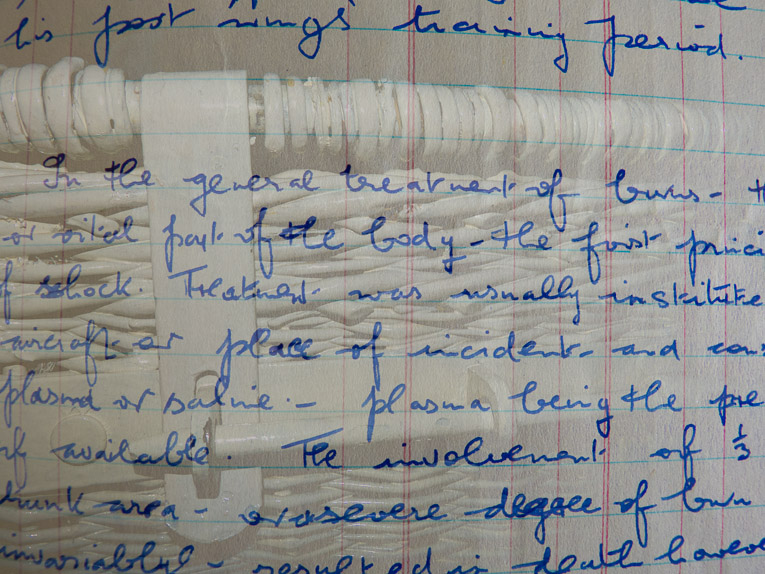 his post wings training period.
In the general treatment of burns - th
or vital part of the body - the first princi
f shock. Treatment was usually institute
aircraft or place of incident - and cons
plasma or saline - plasma being the pre
if available. The involvement of 1/3
trunk area - or a severe degree of burn
invariably - resulted in death howeve